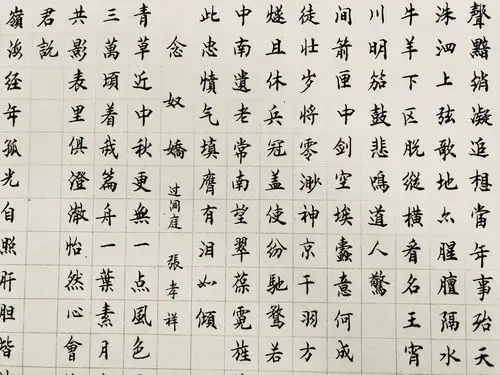 聲黯銷凝追想當年事殆天
洙泗上弦歌地亦腥膻隔水
牛羊下区脱縱橫看名王宵
川明笳鼓悲鳴遣人驚
間箭匣中劍空埃蠹竟何成
徒壯岁將零渺神京干羽方
燧且休兵冠蓋使紛馳騖若
中南遺老常南望翠葆霓旌
此忠憤气填膺有泪如傾
念奴嬌 过洞庭 張孝祥
青草近中秋更無一点風色
三萬頃着我篇舟一葉素月
共影表里俱澄澈怡然心會
君說
嶺海經年孤光自照肝胆皆